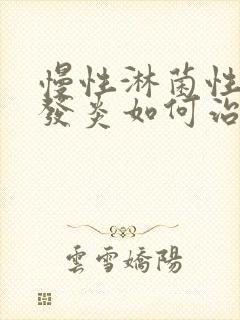 慢性淋菌性
發炎如何治
雲雪嬌陽